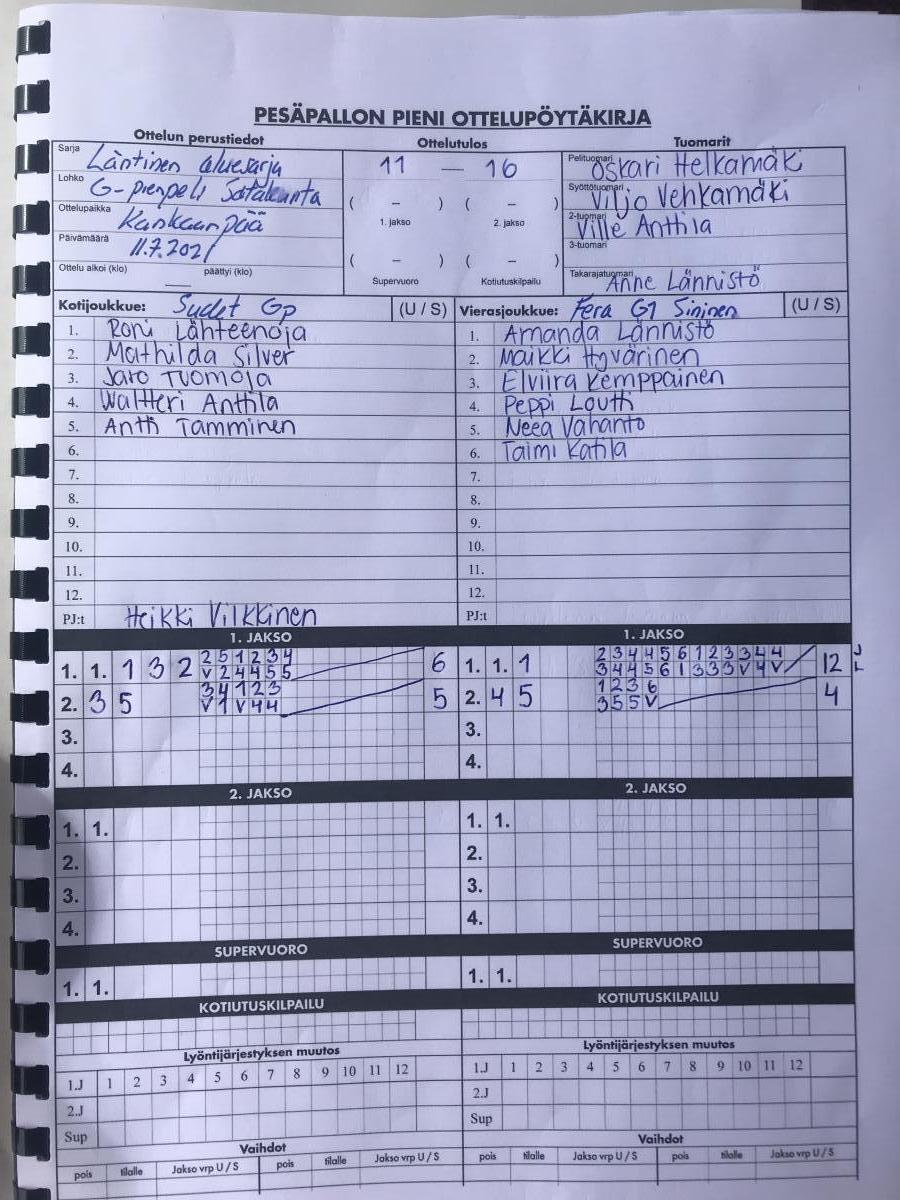 PESÄPALLON PIENI OTTELUPÖYTÄKIRJA
Ottelun perustiedot Ottelutulos Tuomarit
Sarja Läntinen aluesarja
Lohko G-pienpeli Satakunta
Ottelupaikka Kankaanpää
Päivämäärä 11.7.2021
Ottelu alkoi (klo) päättyi (klo)
11 — 16
( – ) ( – )
1. jakso 2. jakso
( – ) ( – )
Supervuoro Kotiutuskilpailu
Pelituomari Oskari Helkamäki
Syöttötuomari Viljo Vehkamäki
2-tuomari Ville Anttila
3-tuomari
Takarajatuomari Anne Lännistö
Kotijoukkue: Sudet Gp (U / S)
1. Roni Lähteenoja
2. Mathilda Silver
3. Jaro Tuomoja
4. Waltteri Anttila
5. Antti Tamminen
6.
7.
8.
9.
10.
11.
12.
PJ:t Heikki Vilkkinen
Vierasjoukkue: Fera G1 Sininen (U / S)
1. Amanda Lännistö
2. Maikki Hyvärinen
3. Elviira Kemppainen
4. Peppi Loutti
5. Neea Vahanto
6. Taimi Katila
7.
8.
9.
10.
11.
12.
PJ:t
1. JAKSO
1. 1. 1 3 2 2 5 1 2 3 4 6
V 2 4 4 5 5
2. 3 5 3 4 1 2 3 5
V 1 V 4 4
3.
4.
1. JAKSO
1. 1. 1 2 3 4 4 5 6 1 2 3 3 4 4 12
3 4 4 5 6 1 3 3 3 V 4 V
2. 4 5 1 2 3 6 4
3 5 5 V
3.
4.
2. JAKSO
1. 1.
2.
3.
4.
2. JAKSO
1. 1.
2.
3.
4.
SUPERVUORO
1. 1.
SUPERVUORO
1. 1.
KOTIUTUSKILPAILU
KOTIUTUSKILPAILU
Lyöntijärjestyksen muutos
1.J 1 2 3 4 5 6 7 8 9 10 11 12
2.J
Sup
Lyöntijärjestyksen muutos
1.J 1 2 3 4 5 6 7 8 9 10 11 12
2.J
Sup
Vaihdot
pois tilalle Jakso vrp U / S pois tilalle Jakso vrp U / S
Vaihdot
pois tilalle Jakso vrp U / S pois tilalle Jakso vrp U / S